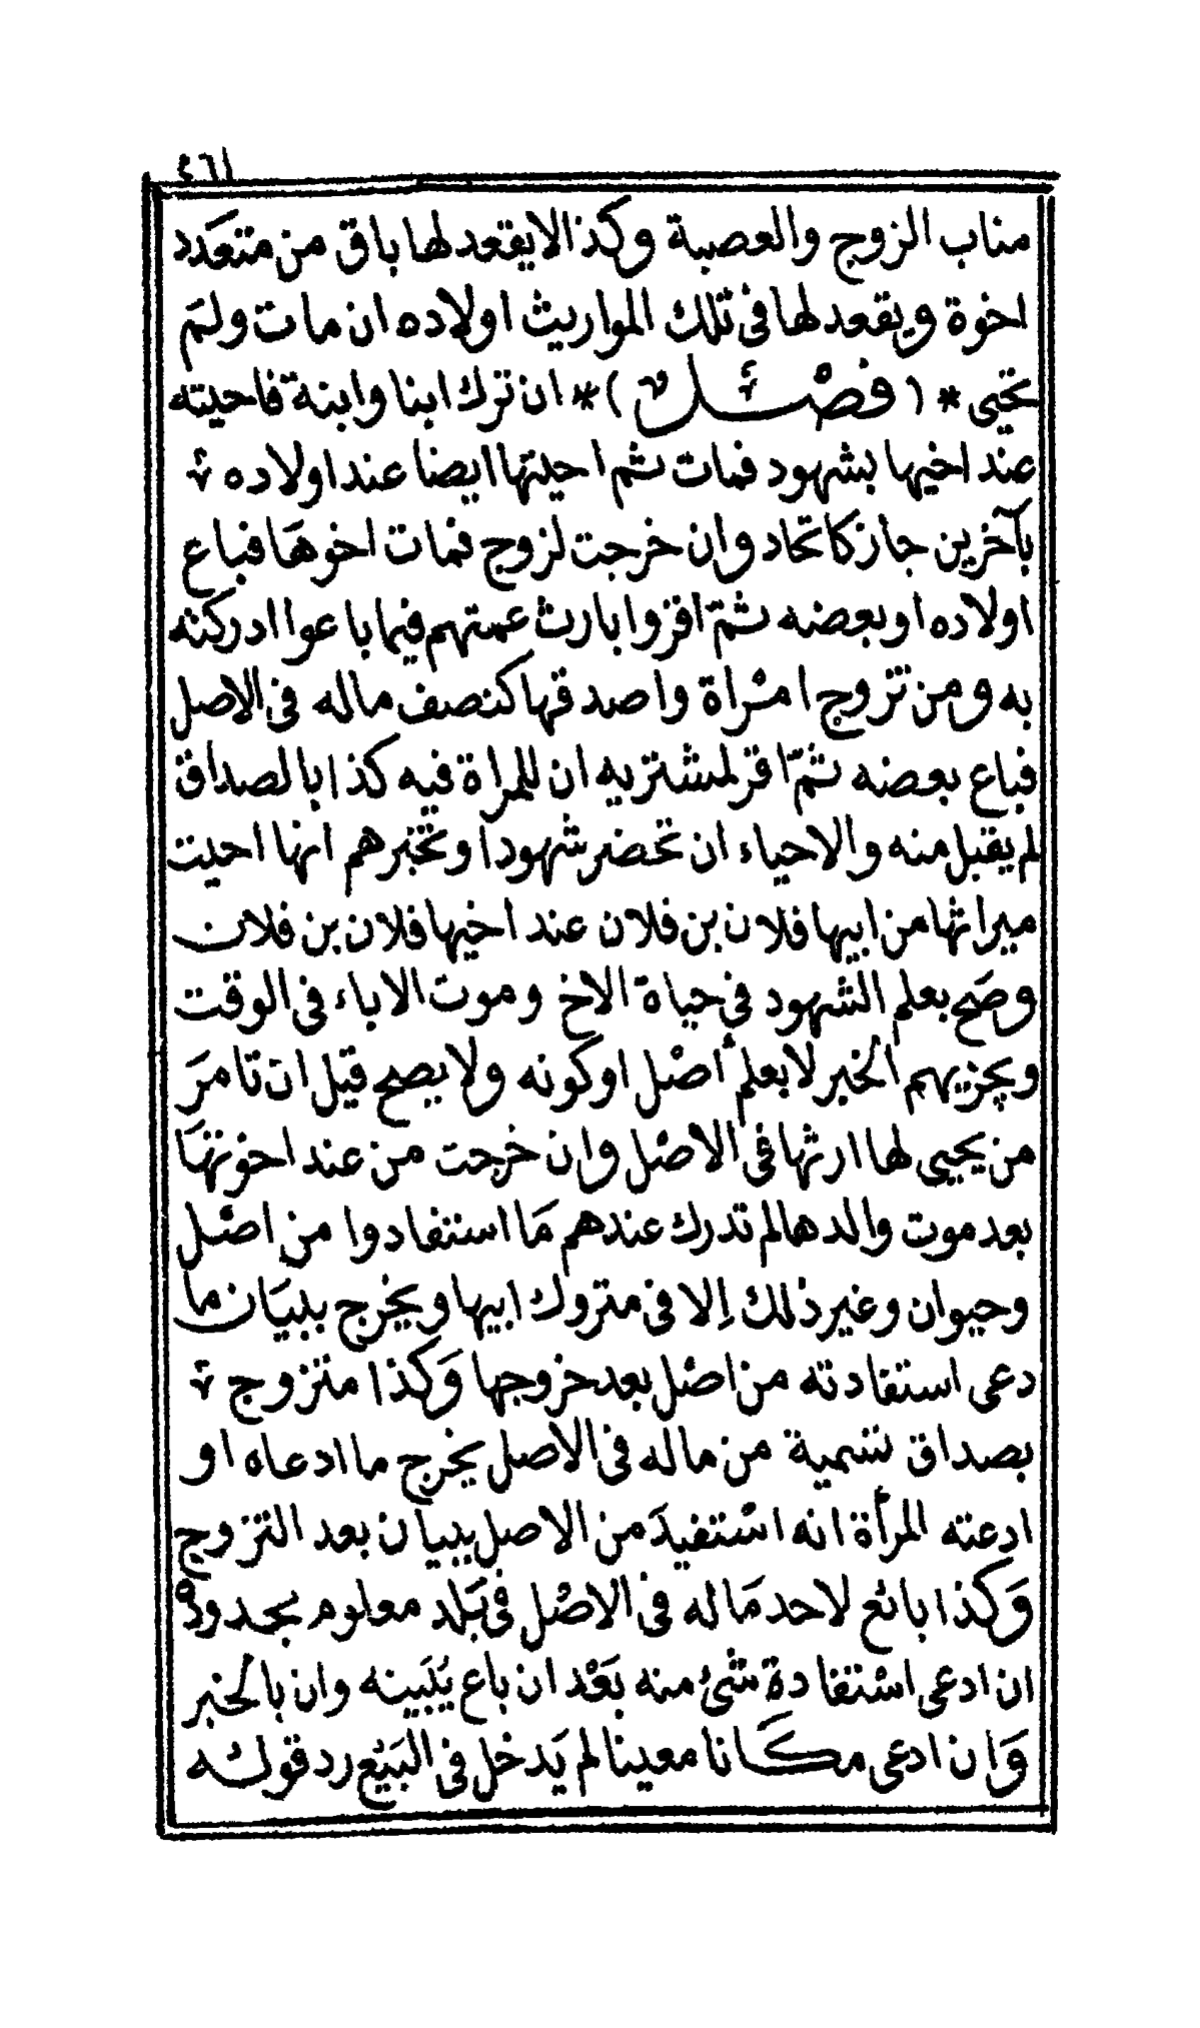 ٤٦١
مناب الزوج والعصبة وكذا لا يقعد لها باق من متعدد
اخوة ويقعد لها فى تلك المواريث اولاده ان مات ولم
تحيى * ( فصل ) * ان ترك ابنا وابنة فاحيته
عند اخيها بشهود فمات ثم احيتها ايضا عند اولاده
بآخرين جاز كاتحاد وان خرجت لزوج فمات اخوها فباع
اولاده او بعضه ثم اقروا بارث عمتهم فيما باعوا ادركته
به ومن تزوج امرأة واصدقها كنصف ماله فى الاصل
فباع بعضه ثم اقر لمشتريه ان للمراة فيه كذا بالصداق
لم يقبل منه والاحياء ان تحضر شهودا وتخبرهم انها احيت
ميراثها من ابيها فلان بن فلان عند اخيها فلان بن فلان
وصح بعلم الشهود فى حياة الاخ وموت الاباء فى الوقت
ويجزيهم الخبر لا بعلم أصل او كونه ولا يصح قيل ان تامر
من يحيى لها ارثها فى الاصل وان خرجت من عند اخوتها
بعد موت والدها لم تدرك عندهم ما استفادوا من اصل
وحيوان وغير ذلك إلا فى متروك ابيها ويخرج ببيان ما
دعى استفادته من اصل بعد خروجها وكذا متزوج
بصداق تسمية من ماله فى الاصل يخرج ما ادعاه او
ادعته المرأة انه استفيد من الاصل ببيان بعد التزوج
وكذا بائع لاحد ماله فى الاصل فى بلد معلوم بحدود
ان ادعى استفادة شئ منه بعد ان باع يبينه وان بالخبر
وان ادعى مكانا معينا لم يدخل فى البيع رد قوله